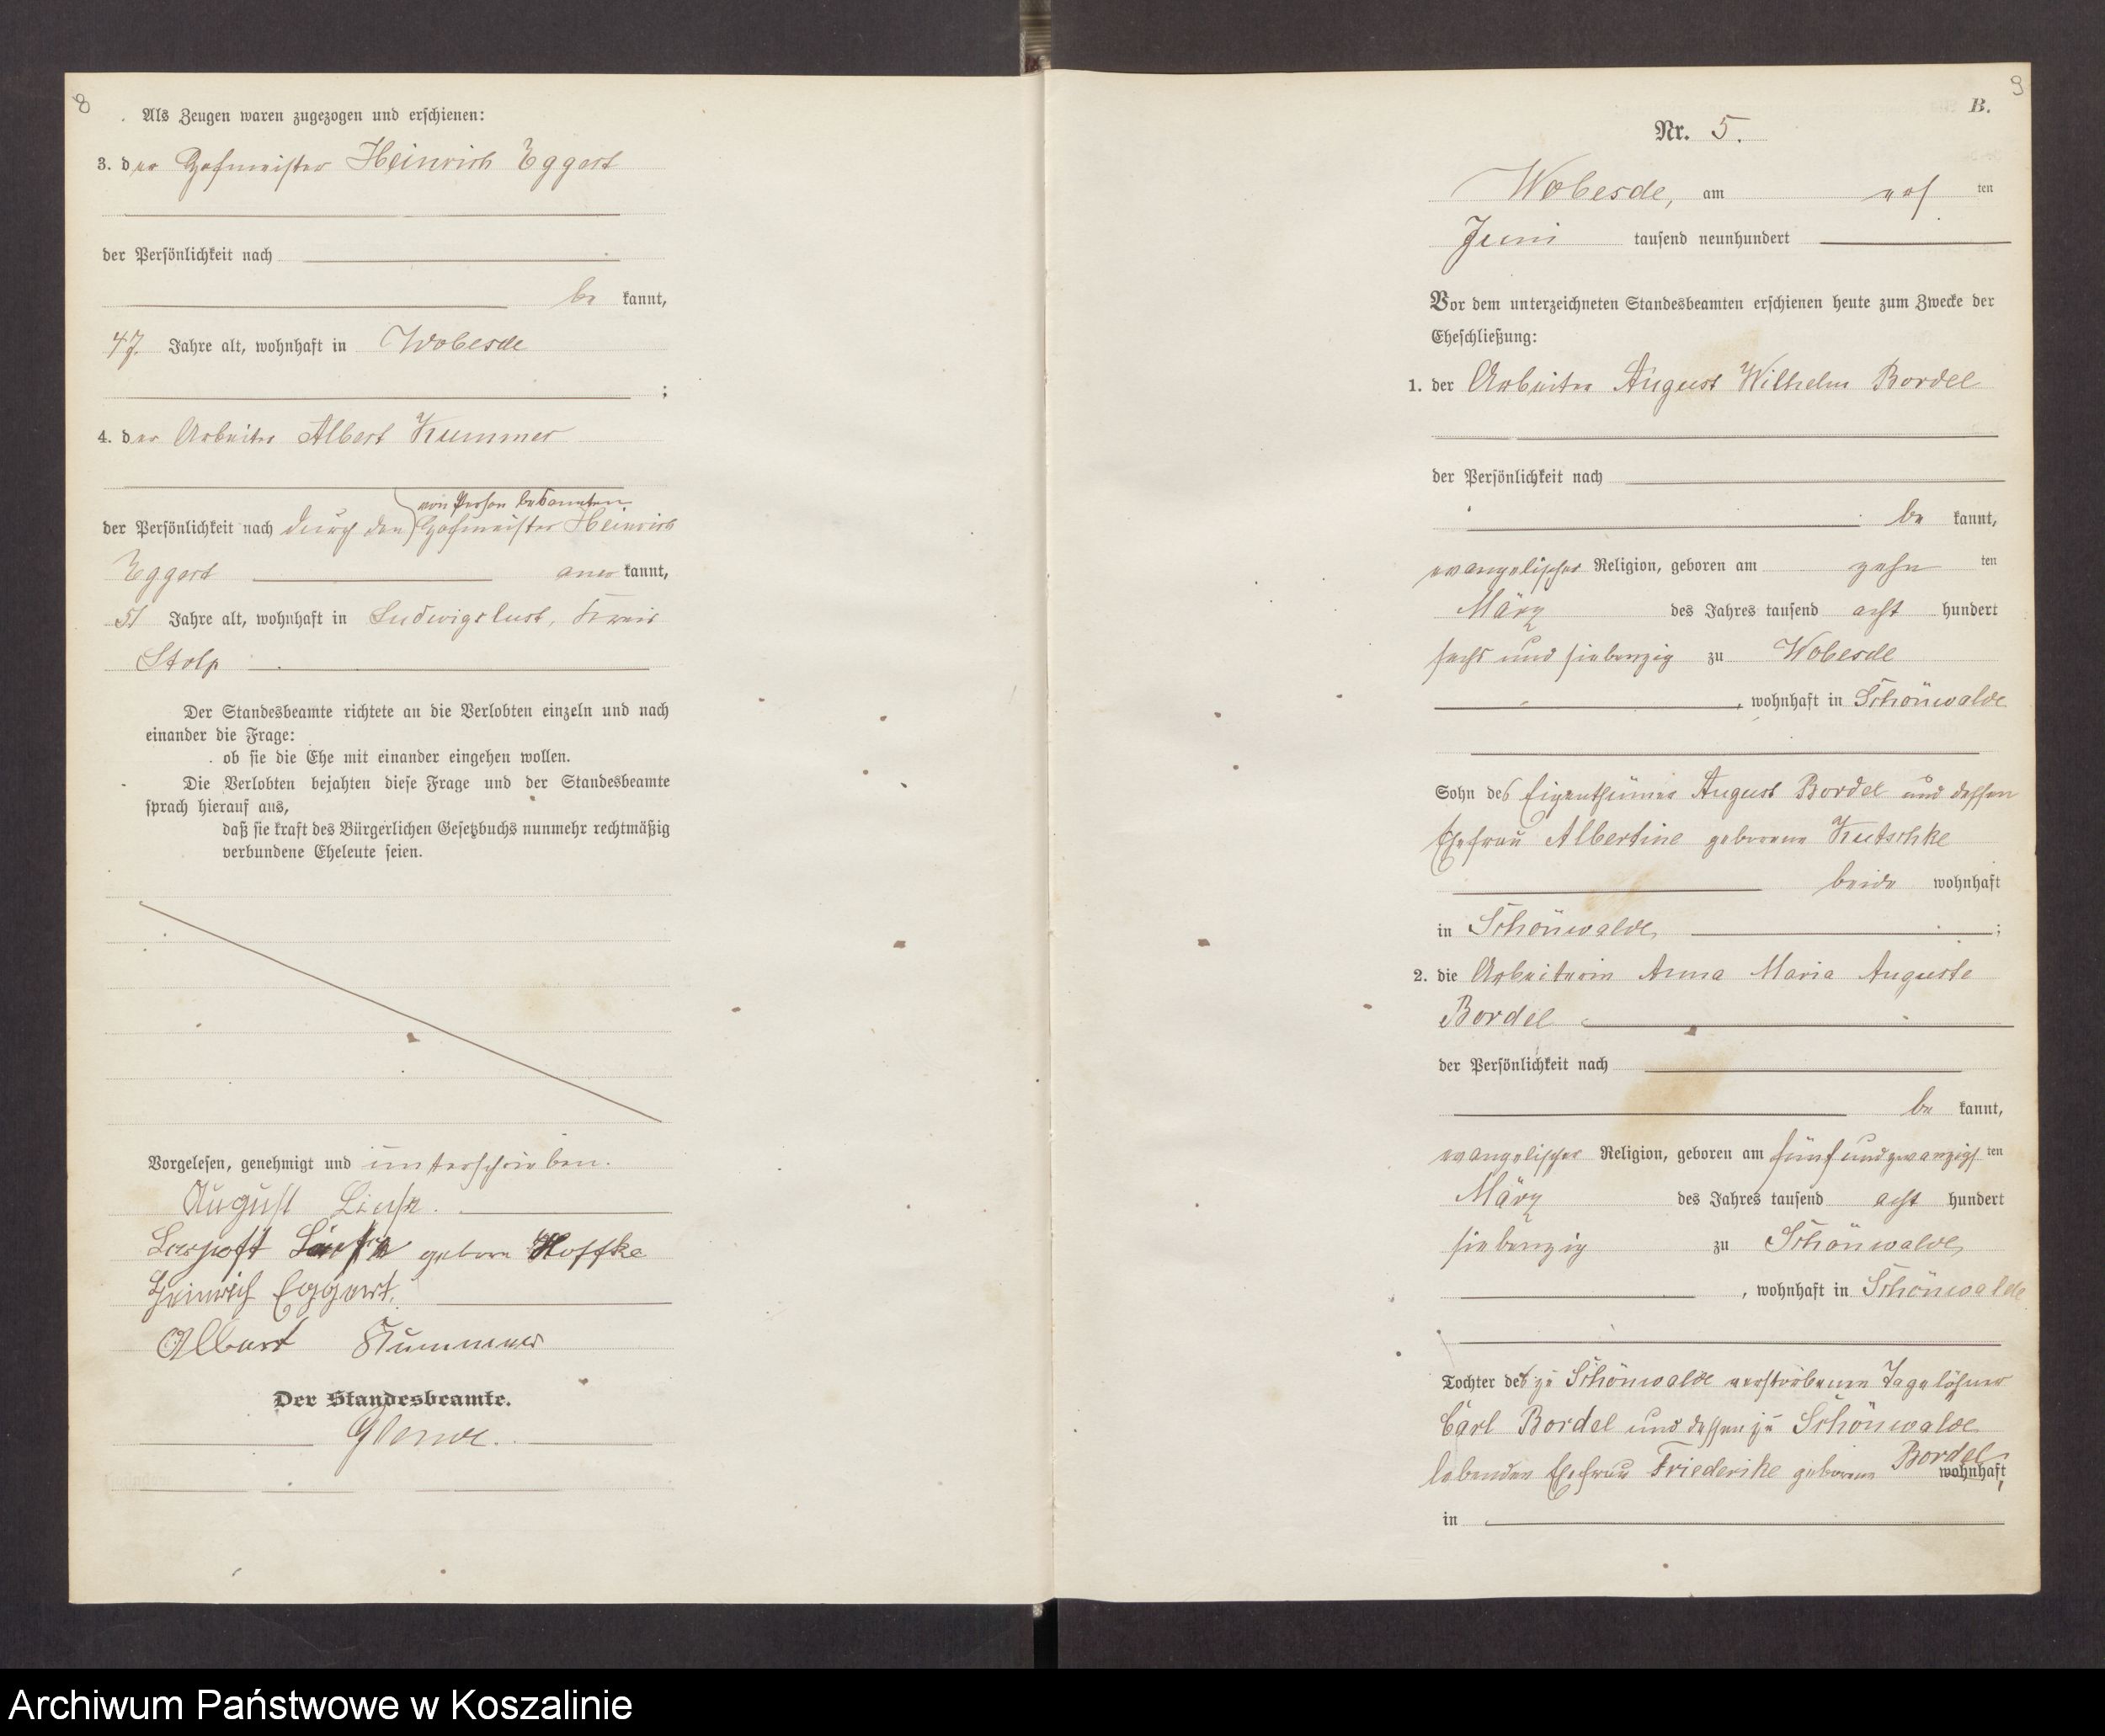 8
Als Zeugen waren zugezogen und erschienen:
3. der Hofmeister Heinrich Eggert
der Persönlichkeit nach
be kannt,
47 Jahre alt, wohnhaft in Wobesde
;
4. der Arbeiter Albert Kummer
von Person bekannten
der Persönlichkeit nach durch den Hofmeister Heinrich
Eggert aner kannt,
51 Jahre alt, wohnhaft in Ludwigslust, Kreis
Stolp
Der Standesbeamte richtete an die Verlobten einzeln und nach
einander die Frage:
ob sie die Ehe mit einander eingehen wollen.
Die Verlobten bejahten diese Frage und der Standesbeamte
sprach hierauf aus,
daß sie kraft des Bürgerlichen Gesetzbuchs nunmehr rechtmäßig
verbundene Eheleute seien.
Vorgelesen, genehmigt und unterschrieben.
August
geborn Hoffke
Heinrich Eggert.
Albert Kummer
Der Standesbeamte.
9
B.
Nr. 5.
Wobesde, am ten
Juni tausend neunhundert
Vor dem unterzeichneten Standesbeamten erschienen heute zum Zwecke der
Eheschließung:
1. der Arbeiter August Wilhelm Bordel
der Persönlichkeit nach
be kannt,
evangelischer Religion, geboren am zehn ten
März des Jahres tausend acht hundert
sechs und siebenzig zu Wobesde
, wohnhaft in Schönwalde
Sohn des Eigenthümer August Bordel und dessen
Ehefrau Albertine geborene Kutschke
beide wohnhaft
in Schönwalde ;
2. die Arbeiterin Anna Maria Auguste
Bordel
der Persönlichkeit nach
be kannt,
evangelischer Religion, geboren am fünfundzwanzigs ten
März des Jahres tausend acht hundert
siebenzig zu Schönwalde
, wohnhaft in Schönwalde
Tochter des zu Schönwalde verstorbenen Tagelöhner
Carl Bordel und dessen zu Schönwalde
lebenden Ehefrau Friederike geborene Bordel wohnhaft,
in
Archiwum Państwowe w Koszalinie